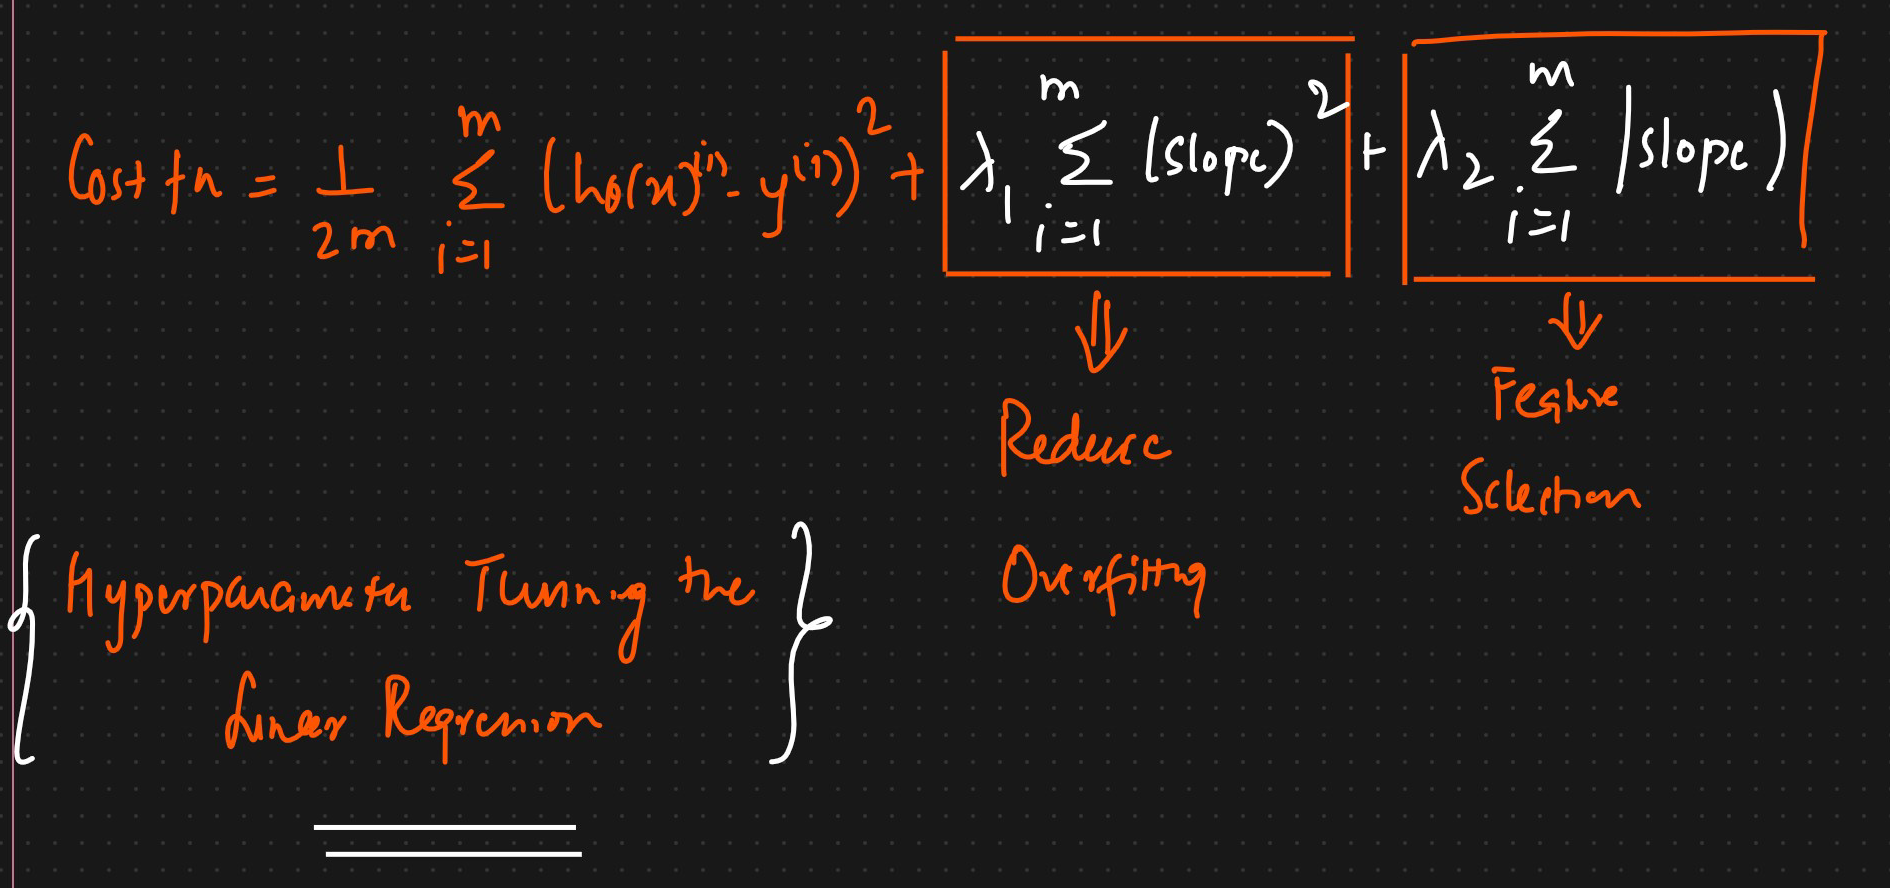 Cost fn = 1/2m Σ_{i=1}^{m} (hθ(x)^(i) - y^(i))² + λ₁ Σ_{i=1}^{m} (slope)² + λ₂ Σ_{i=1}^{m} |slope|
⇓ ⇓
Reduce
Overfitting
Feature
Selection
{ Hyperparameter Tunning the
Linear Regression }